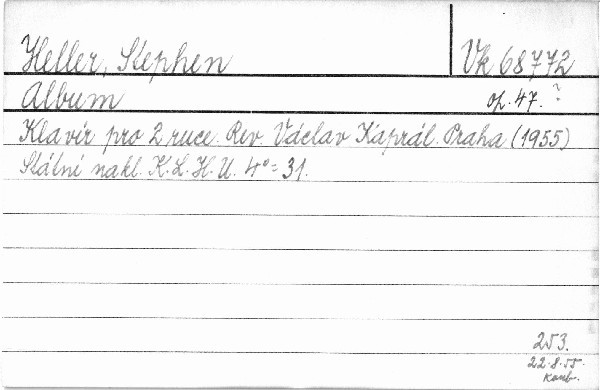 Heller, Stephen Vk 68772
Album op. 47. ?
Klavír pro 2 ruce. Rev. Václav Kaprál. Praha (1955)
Státní nakl. K. L. H. U. 4° = 31.
253.
22.8.55.